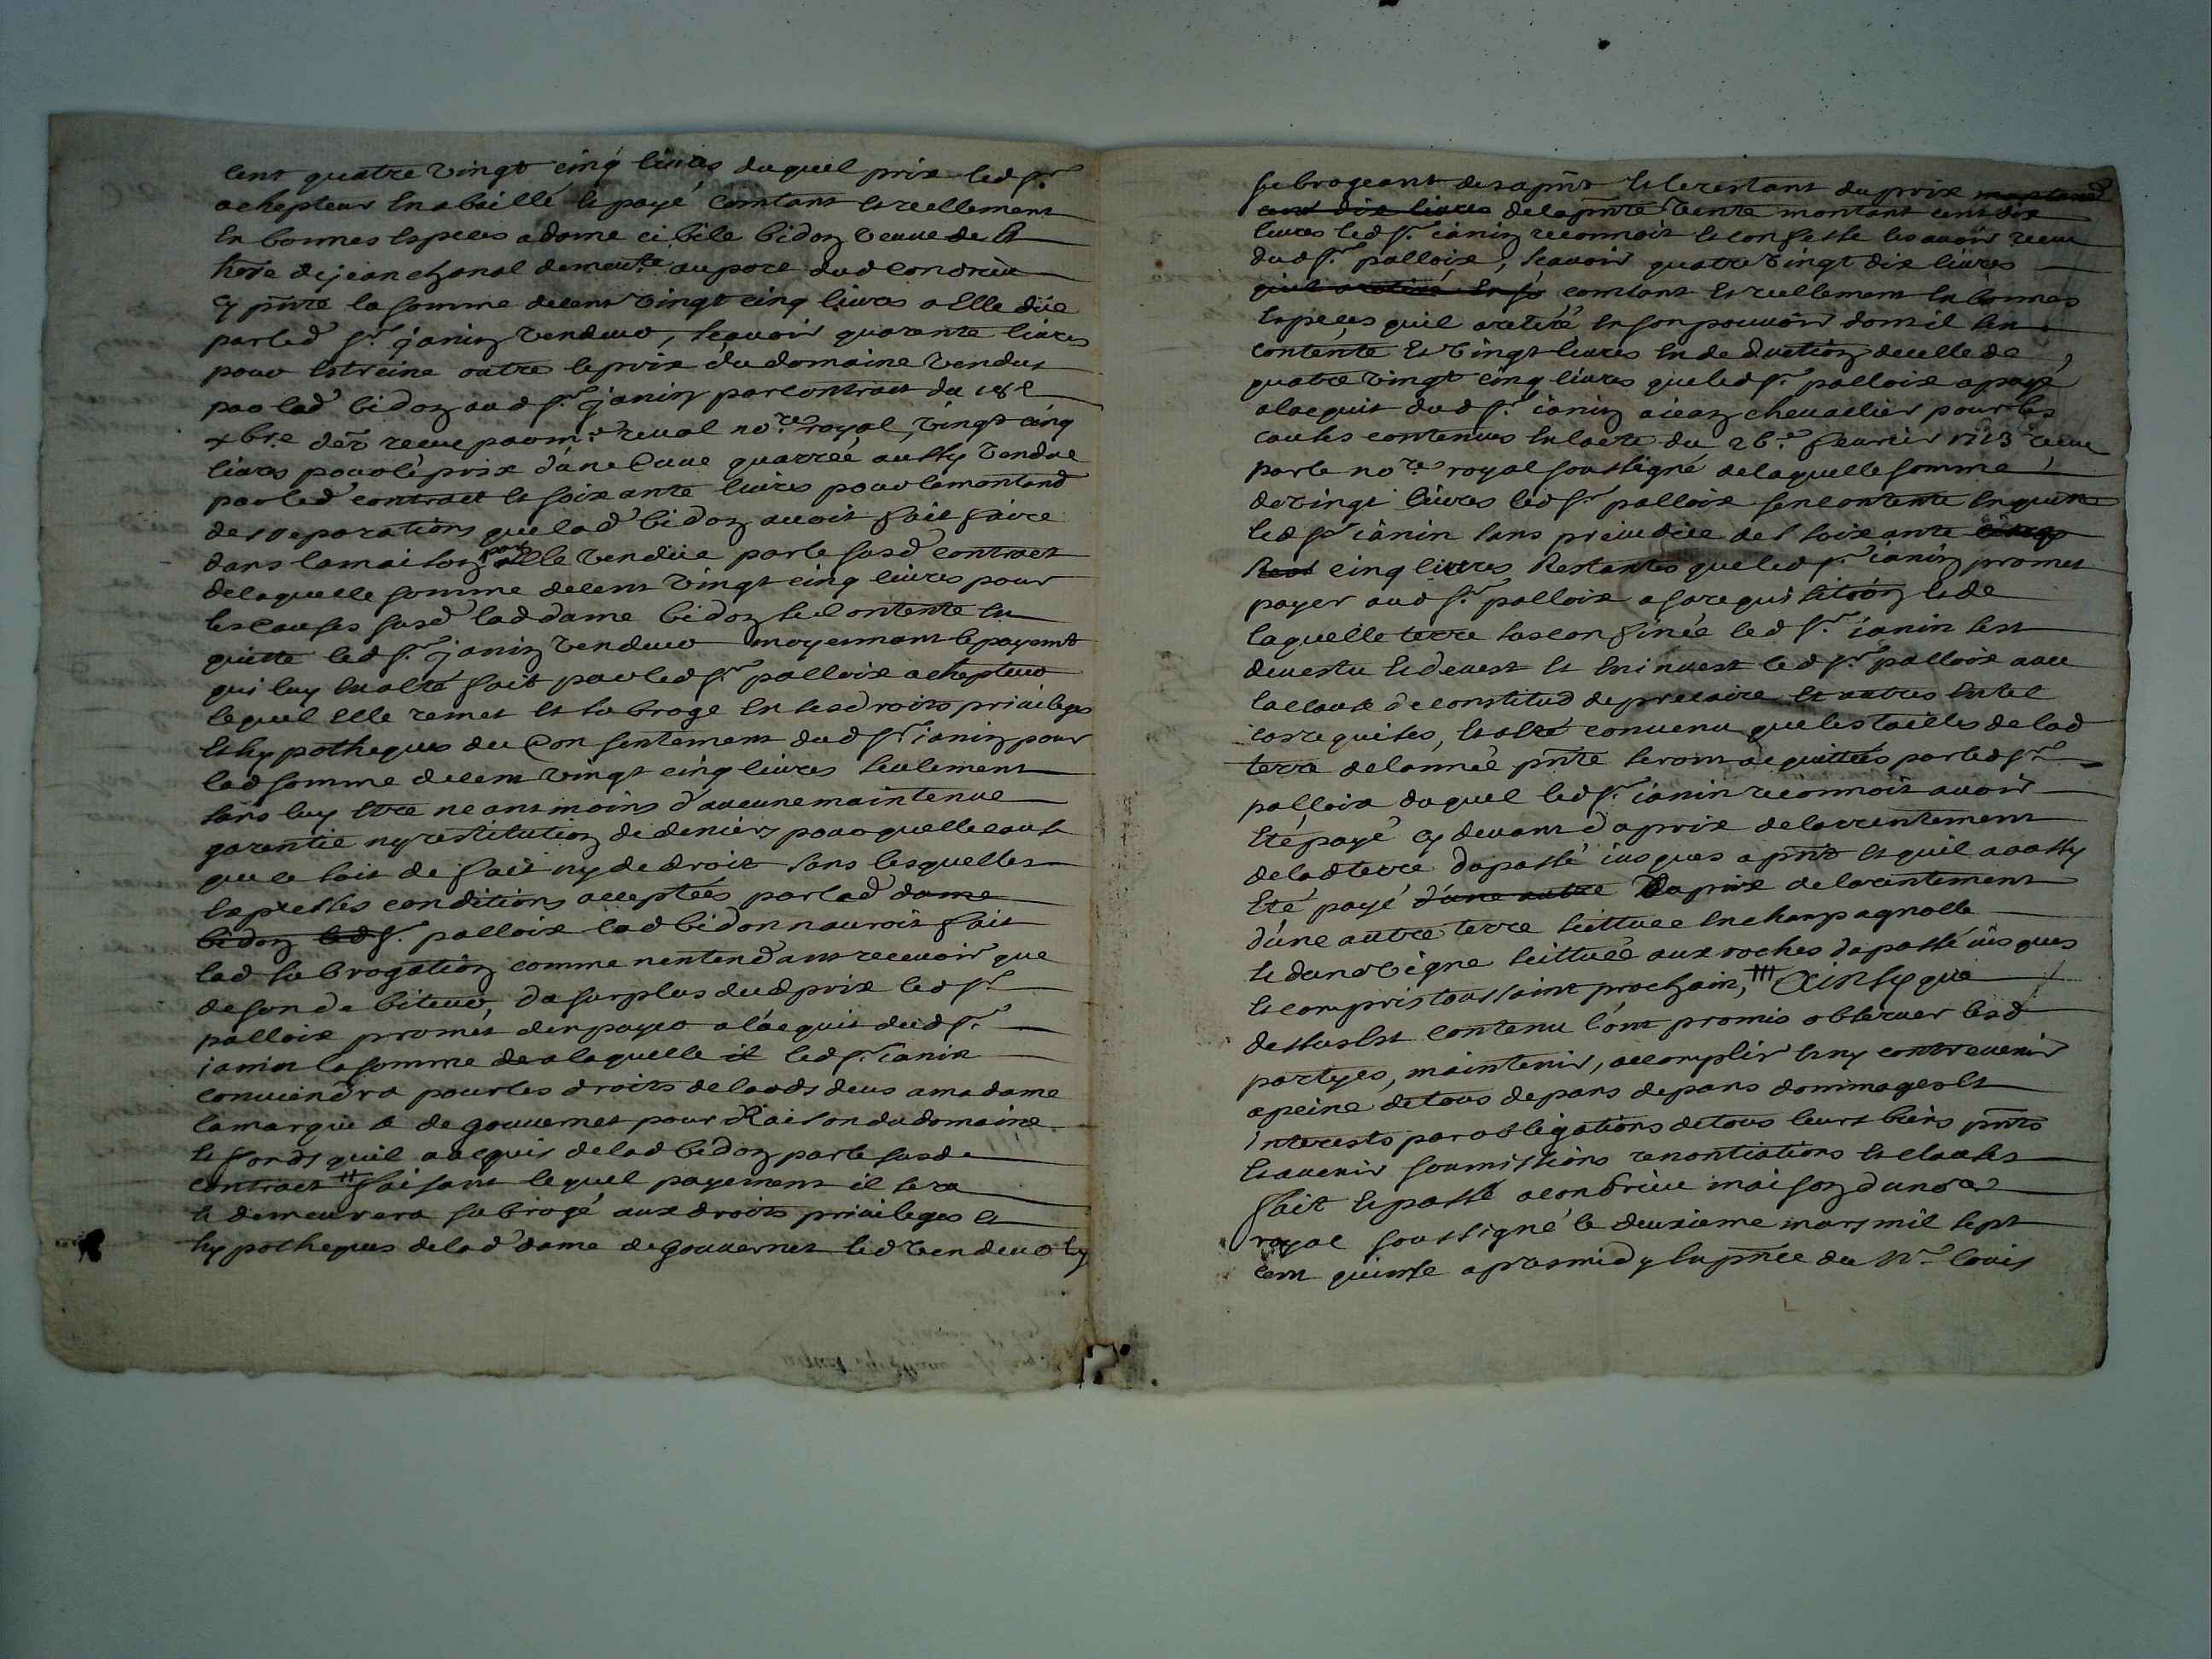 cent quatre vingt cinq livres duquel prix led Sr
achepteur en a baillé et payé comtant et reellement
en bonnes especes a dame cibile bidon veuve et
here de jean chanal demeute au port dud condrieu
cy pnte la somme de cent vingt cinq livres a elle düe
par led Sr janin vendeur, scavoir quarante livres
pour estreine outre le prix du domaine vendus
par lad bidon aud Sr janin par contract du 18e
xbre der receu par me reval nore royal, vingt cinq
livres pour le prix d'une cuve quarrée aussy vendue
par led contract et soixante livres pour le montand
des reparations que lad bidon avoit fait faire
dans la maison par elle vendüe par le susd contract
de laquelle somme de cent vingt cinq livres pour
les causes susd lad dame bidon se contente en
quitte led Sr janin vendeur moyennant le payemt
qui luy en a eté fait par led Sr palloix achepteur
lequel elle remet et subroge en ses droits privileges
et hypotheques du consentement dud Sr janin pour
lad somme de cent vingt cinq livres seulement
sans luy etre neantmoins d'aucune maintenue
garentie ny restitution de deniers pour quelle cause
que ce soit de fait ny de droit sans lesquelles
expresses conditions acceptées par led dame
bidon led Sr palloix lad bidon n'auroit fait
lad subrogation comme n'entendant recevoir que
de son debiteur, du surplus dud prix led Sr
palloix promet den payer a l'acquit dud Sr
janin la somme de a laquelle il led Sr janin
conviendra pour les droits de laods deus a madame
la marquise de gouvernet pour Raison du domaine
et fonds quil a acquis de lad bidon par le susd
contract # faisant lequel payement il sera
et demeurera subrogé aux droits privileges et
hypotheques de lad dame de gouvernet led vendeur ly
subrogeant des a pnt et le restant du prix montand
cent dix livres de la pnte vente montant cent dix
livres led Sr janin reconnoit et confesse les avoir receu
dud Sr palloix, scavoir quatre vingt dix livres
quil a retiré en so comtant et reellement en bonnes
especes quil a retiré en son pouvoir dont il sen
contente et vingt livres en deduction de celle de
quatre vingt cinq livres que led Sr palloix a payé
a lacquit dud Sr janin a jean chevallier pour les
causes contenues en lacte du 26e fevrier 1713 receu
par le nore royal soussigné de laquelle somme
de vingt livres led Sr palloix sen contente en quitte
led Sr janin sans prejudice des soixante
cinq livres Restantes que led Sr janin promet
payer aud Sr palloix a sa requisition et de
laquelle terre susconfinée led Sr janin sest
devestu et devest et en invest led Sr palloix avec
la clause de constitud de precaire et autres en tel
cas requises, et a eté convenu que les tailles de lad
terre de lannée pnte seront acquittées par led Sr
palloix duquel led Sr janin reconnoit avoir
eté payé cy devant du prix de larrentement
de lad terre du passé jusques a pnt et quil a aussy
eté payé d'une autre du prix de larentement
d'une autre terre scittuée en champagnolle
et d'une vigne scittuée aux roches du passé jusques
et compris toussaint prochain, # Ainsy que
dessus est contenu l'ont promis observer lesd
partyes, maintenir, accomplir et ny contrevenir
a peine de tous depans depans dommages et
interests par obligations de tous leurs biens pnts
et avenir soumissions renontiations et clauses
fait et passé a condrieu maison du nore
royal soussigné le deuxieme mars mil sept
cent quinze apres midy en pnce de Mr louis